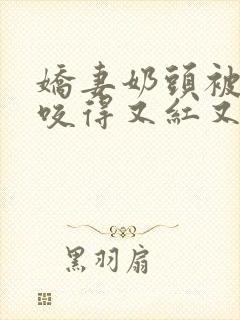 嬌妻奶頭被
咬得又紅又
黑羽扇